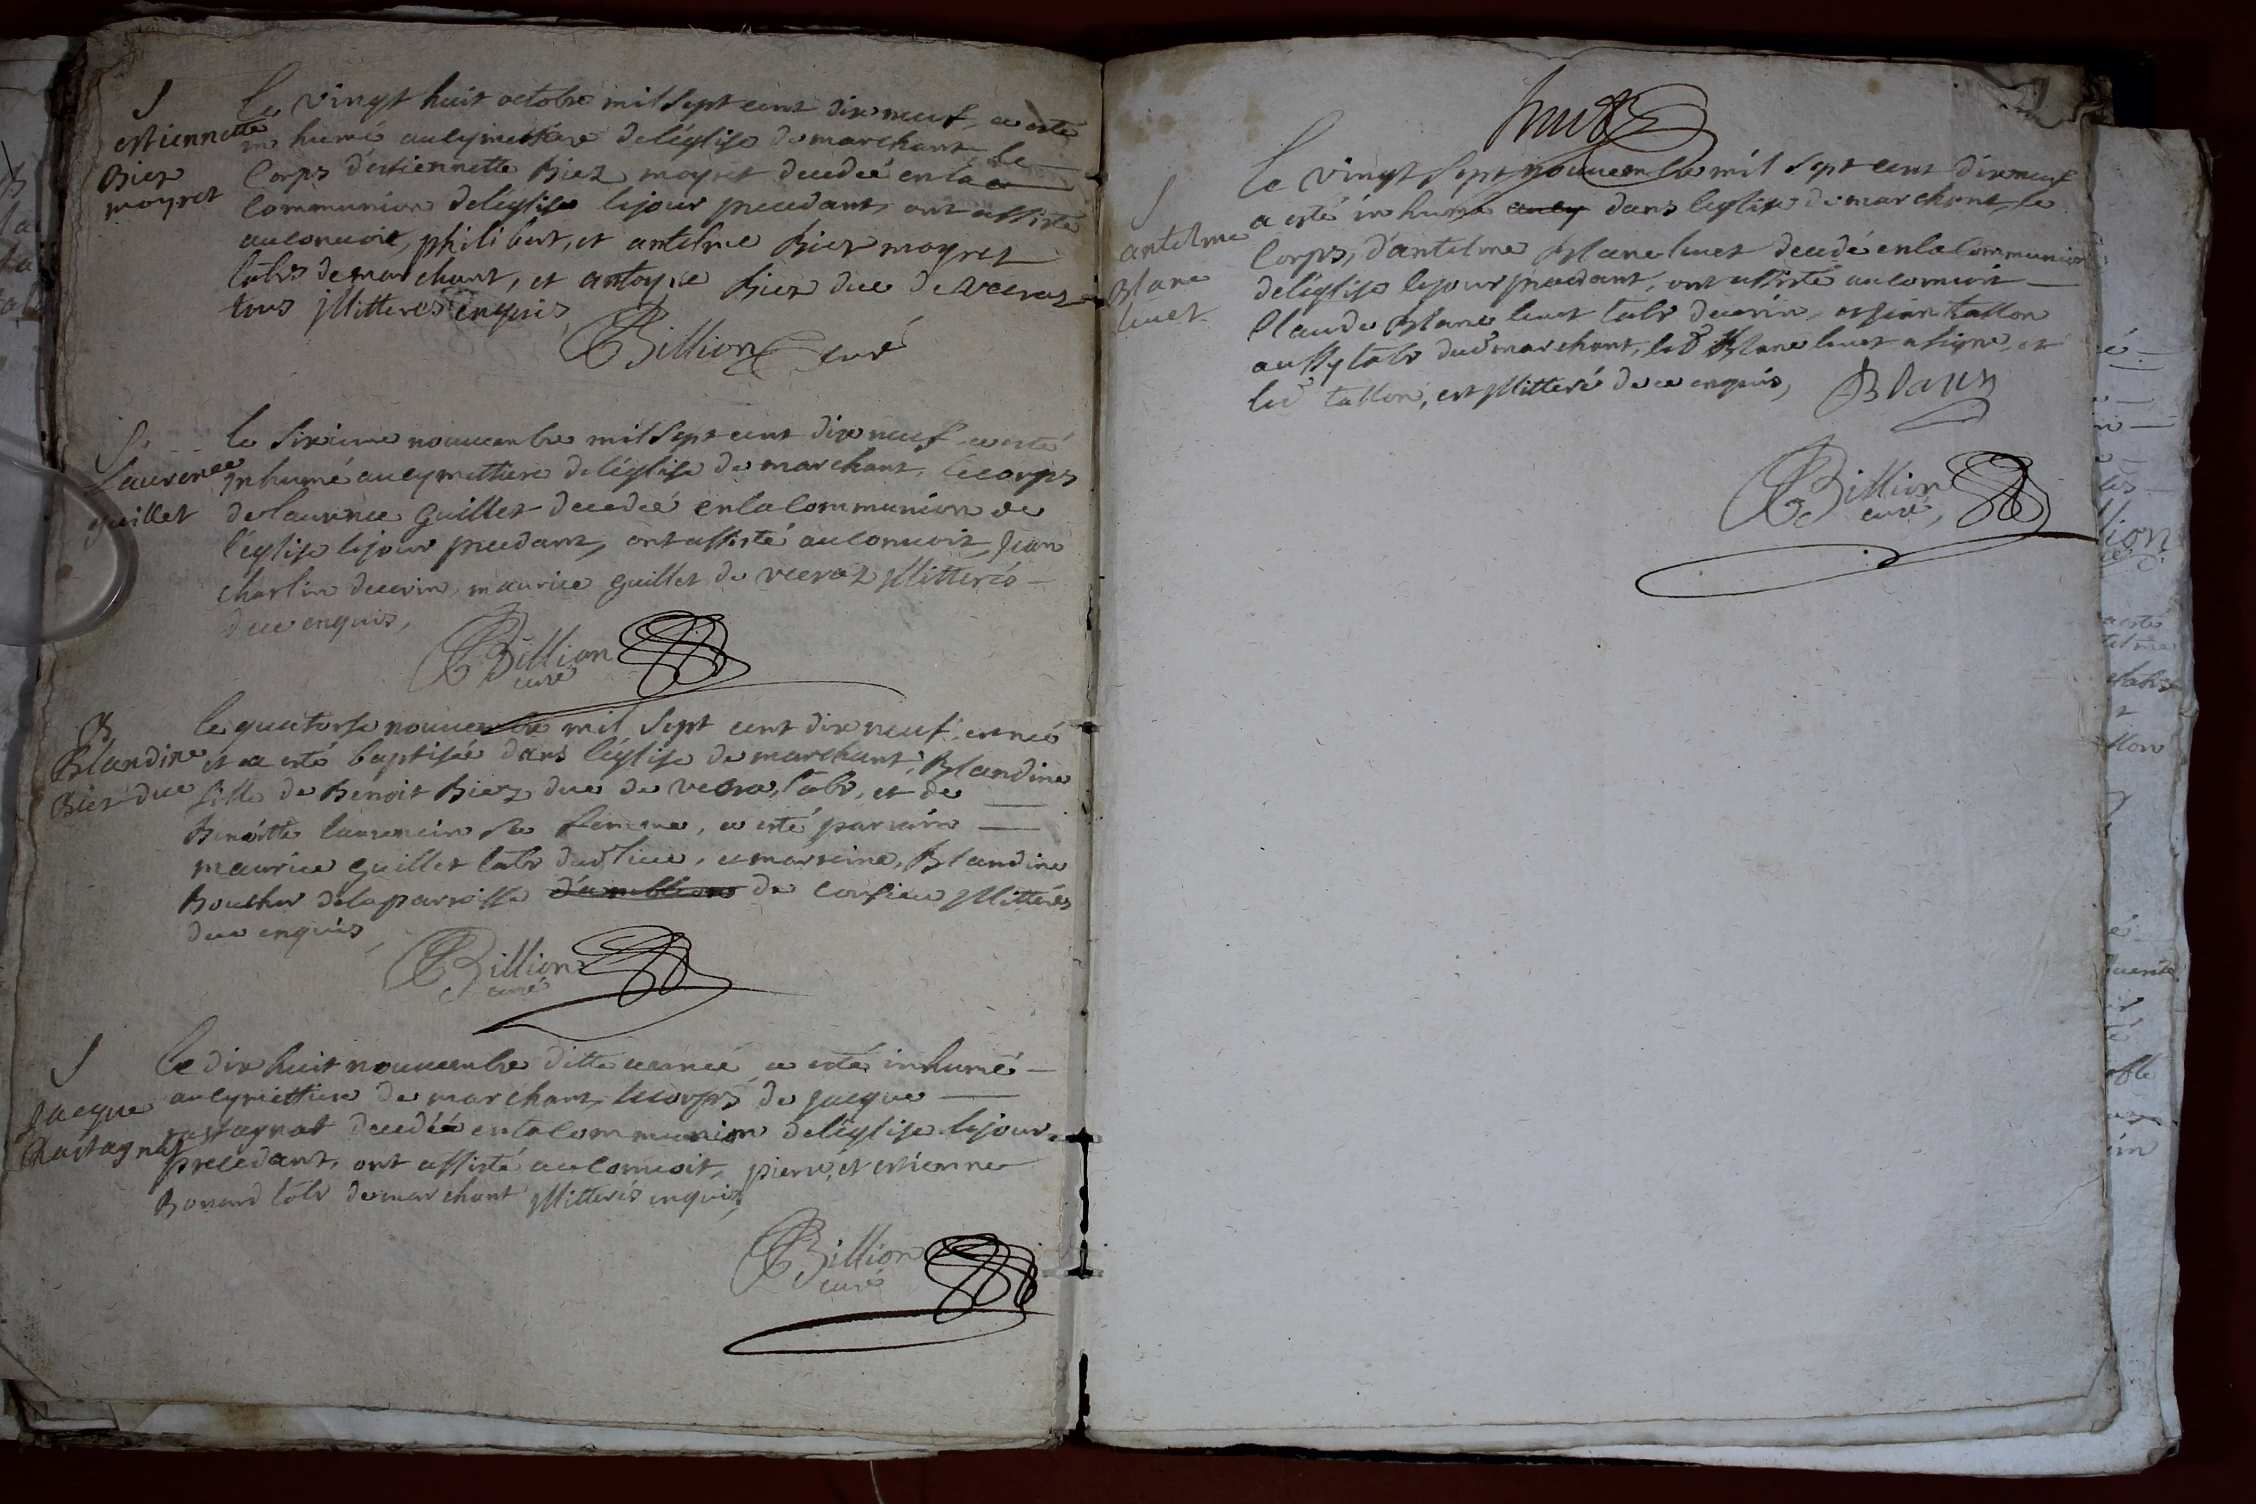 S
estiennette
Biez
moyret
Le vingt huit octobre mil sept cent dix neuf, a esté
in humé au cymettiere de l'église de marchant, le
Corps d'estiennette Biez moyret decedeé en la
Communion de l'église le jour precedant, ont assisté
au convoit, philibert, et antelme Biez moyret
labrs de marchant, et antoyne Biez duc de veeraz
tous jllitteres enquis
Billion curé
S
Laurence
guillet
le sixieme nouuembre mil sept cent dix neuf a esté
jnhumé au cymettiere de l'église de marchant, le corps
de laurence guillet decedeé en la Communion de
l'église le jour precedant, ont assisté au convoit, Jean
charlin decrin, maurice guillet de veeraz jllitterés
de ce enquis,
Billion
curé
B
Blandine
Biez duc
le quatorse nouuembre mil sept cent dix neuf, est neé
et a esté baptiseé dans l'église de marchant, Blandine
fille de Benoit Biez duc de veera, labr, et de
Benoitte laurencin sa femme, a esté parrain
maurice guillet labr dud lieu, et marreine, Blandine
Boucher de la parroisse de Conzieu jllitterés
de ce enquis,
Billion
curé
S
Jacque
Chastagnat
Le dix huit nouuembre ditte année a esté inhumé
au cymettiere de marchant, le corps de jacque
castagnat decedéé en la Communion de l'église le jour
precedant, ont assisté au Convoit, pierre, et estienne
Bonard labr de marchant jllitterés enquis,
Billion
curé
S
antelme
Blanc
luuet
Le vingt sept nouuembre mil sept cent dix neuf
a esté in humé aucy dans l'église de marchant, le
Corps, d'antelme Blanc luuet decedé en la Communion
de l'église le jour precedant, ont assisté au convoit
Claude Blanc luuet labr decrin, et jean tallon
aussy labr dud marchant, led Blanc luuet a signe, et
led tallon, est jllitteré de ce enquis,
Blanc
Billion
curé,